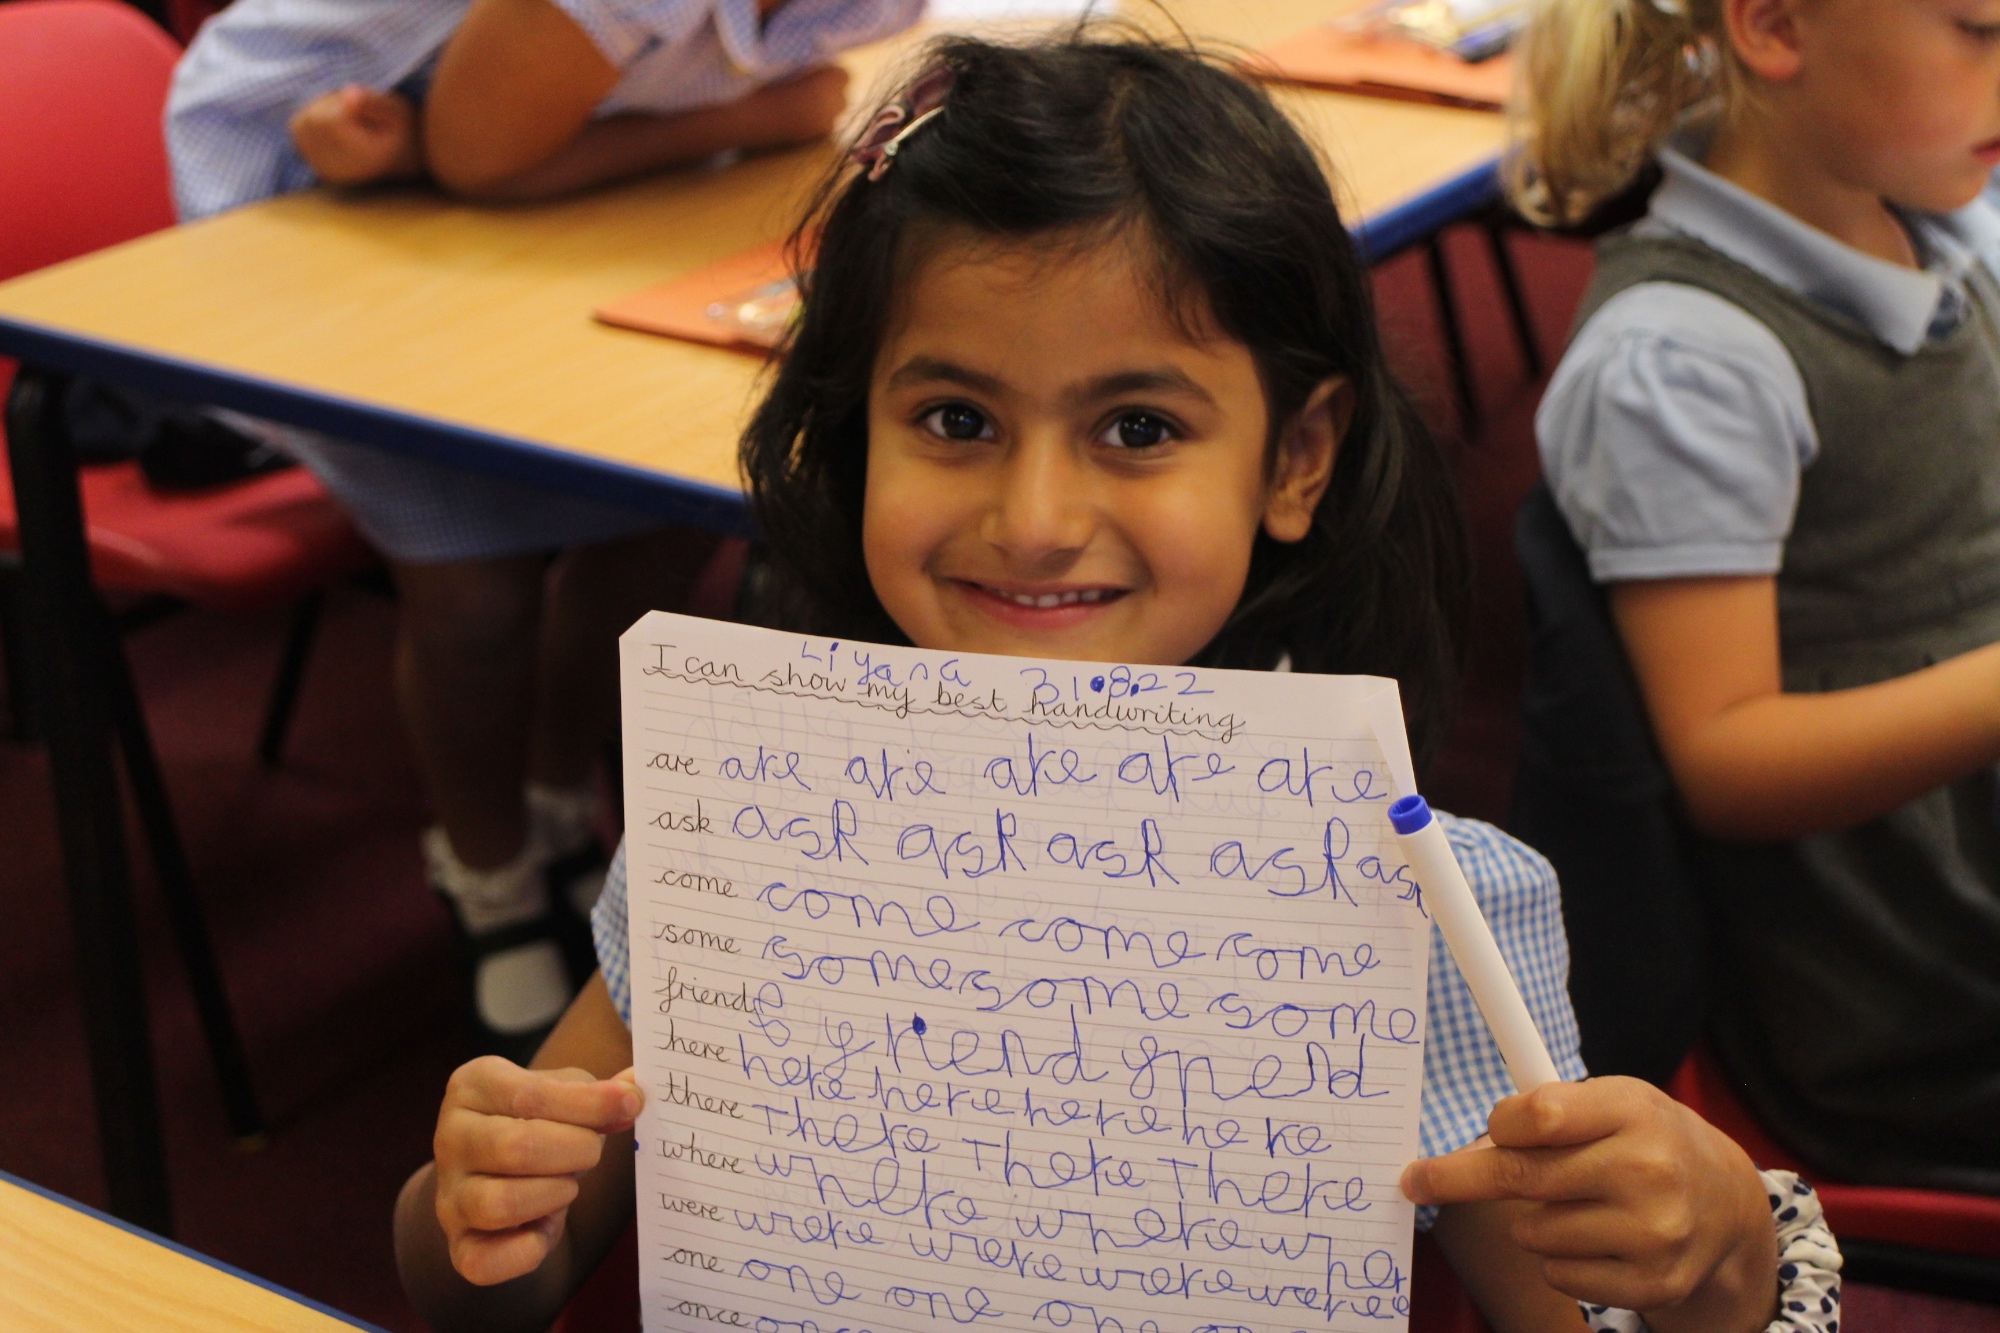 Liyana 31.8.22
I can show my best handwriting
are are are are are are
ask ask ask ask ask ask
come come come come
some some some some
friend friend friend
here here here here here
there There There There
where where where wher
were were were were were
one one one one
once once